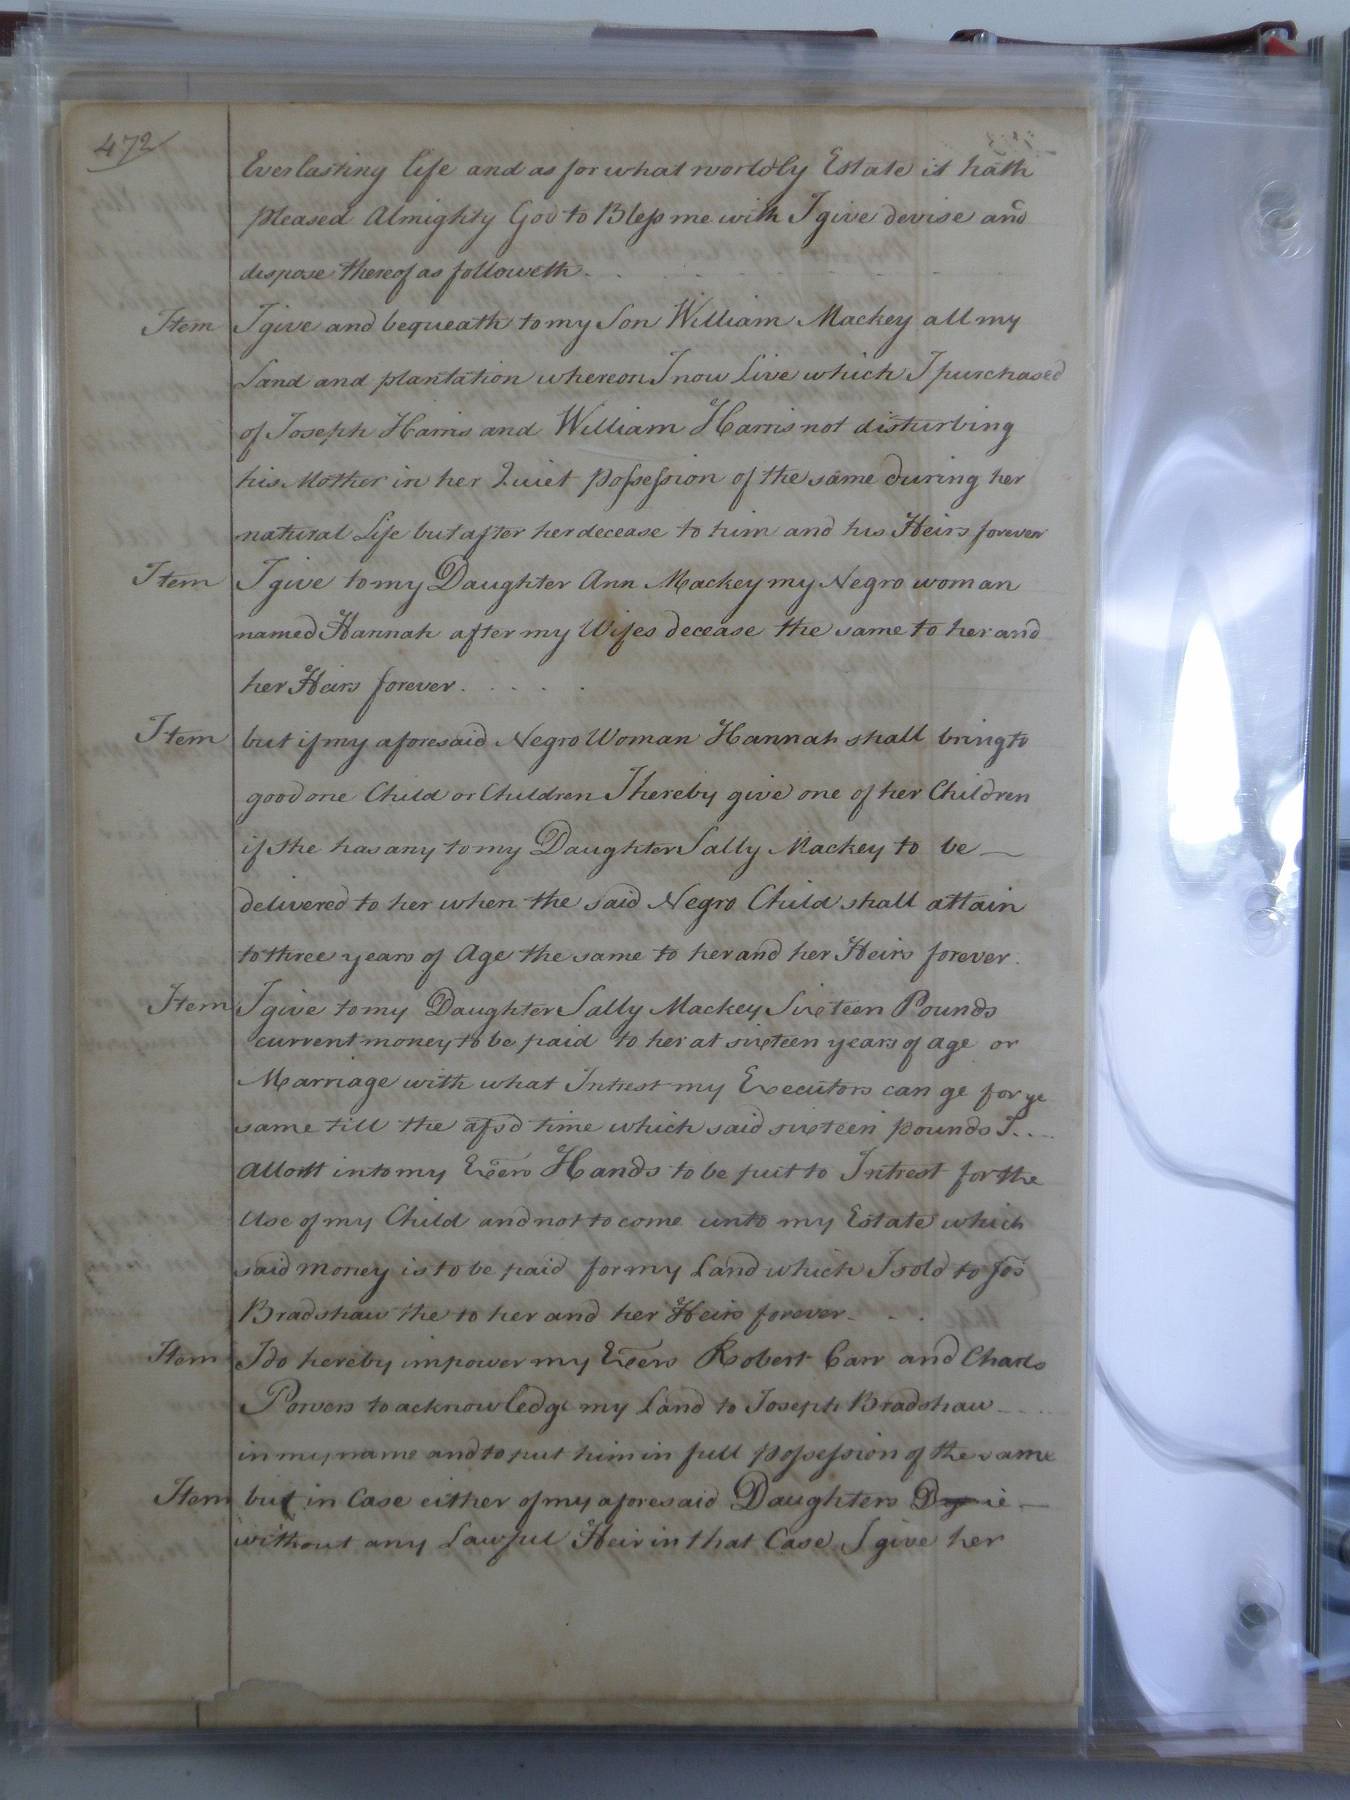 472
Everlasting life and as for what worldly Estate it hath
pleased Almighty God to Bless me with I give devise and
dispose thereof as followeth
Item I give and bequeath to my Son William Mackey all my
Land and plantation whereon I now Live which I purchased
of Joseph Harris and William Harris not disturbing
his Mother in her Quiet Possession of the same during her
natural Life but after her decease to him and his Heirs forever
Item I give to my Daughter Ann Mackey my Negro woman
named Hannah after my Wifes decease the same to her and
her Heirs forever
Item but if my aforesaid Negro Woman Hannah shall bring to
good one Child or Children I hereby give one of her Children
if she has any to my Daughter Sally Mackey to be
delivered to her when the said Negro Child shall attain
to three years of Age the same to her and her Heirs forever.
Item I give to my Daughter Sally Mackey Sixteen Pounds
current money to be paid to her at sixteen years of age or
Marriage with what Intrest my Executors can ge for ye
same till the afsd time which said sixteen pounds I
allott into my Exers Hands to be put to Intrest for the
Use of my Child and not to come unto my Estate which
said money is to be paid for my Land which I sold to Jos
Bradshaw the to her and her Heirs forever
Item I do hereby impower my Exers Robert Carr and Charls
Powers to acknowledge my Land to Joseph Bradshaw
in my name and to put him in full possession of the same
Item but in Case either of my aforesaid Daughters
without any Lawful Heir in that Case I give her